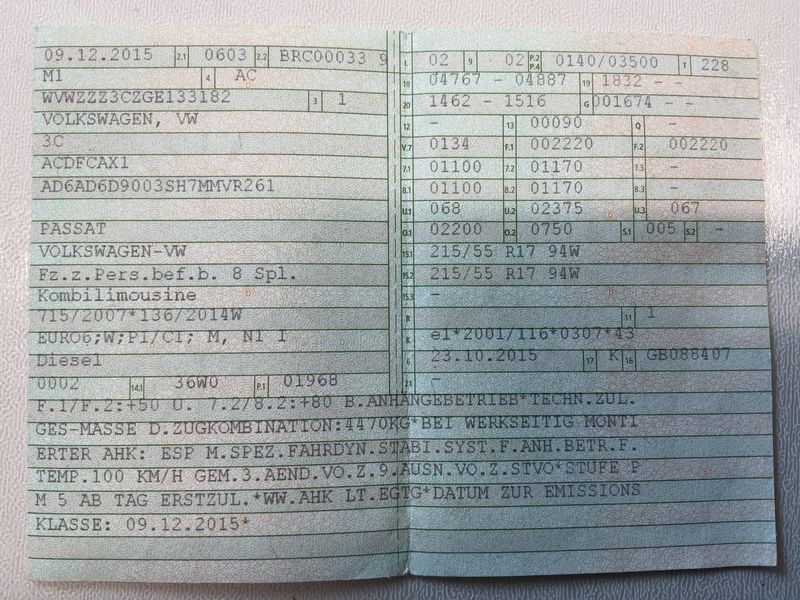 09.12.2015 2.1 0603 2.2 BRC00033 9
M1 4 AC
WVWZZZ3CZGE133182 3 1
VOLKSWAGEN, VW
3C
ACDFCAX1
AD6AD6D9003SH7MMVR261
PASSAT
VOLKSWAGEN-VW
Fz.z.Pers.bef.b. 8 Spl.
Kombilimousine
715/2007*136/2014W
EURO6;W;PI/CI; M, N1 I
Diesel
0002 14.1 36W0 P.1 01968
L 02 9 - 02 P.2 P.4 0140/03500 T 228
18 04767 - 04887 19 1832 - -
20 1462 - 1516 G 001674 - -
12 - 13 00090 Q -
V.7 0134 F.1 002220 F.2 002220
7.1 01100 7.2 01170 7.3 -
8.1 01100 8.2 01170 8.3 -
U.1 068 U.2 02375 U.3 067
O.1 02200 O.2 0750 S.1 005 S.2 -
15.1 215/55 R17 94W
15.2 215/55 R17 94W
15.3 -
R 11 1
K e1*2001/116*0307*43
6 23.10.2015 17 K 16 GB088407
21 -
F.1/F.2:+50 U. 7.2/8.2:+80 B.ANHÄNGEBETRIEB*TECHN.ZUL.
GES-MASSE D.ZUGKOMBINATION:4470KG*BEI WERKSEITIG MONTI
ERTER AHK: ESP M.SPEZ.FAHRDYN.STABI.SYST.F.ANH.BETR.F.
TEMP.100 KM/H GEM.3.AEND.VO.Z.9.AUSN.VO.Z.STVO*STUFE P
M 5 AB TAG ERSTZUL.*WW.AHK LT.EGTG*DATUM ZUR EMISSIONS
KLASSE: 09.12.2015*